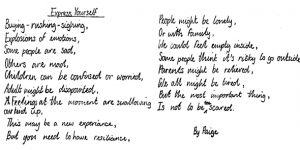 Express Yourself
Buying - rushing - sighing,
Explosions of emotions,
Some people are sad,
Others are mad,
Children can be confused or worried,
Adults might be disapointed,
A feelings at the moment are swallowing
our kind up,
This may be a new experience,
But you need to have resiliance,
People might be lonely,
Or with family.
We could feel empty inside,
Some people think it's risky to go outside
Parents might be retired,
We all might be tired,
But the most important thing,
Is not to be scared.
By Paige